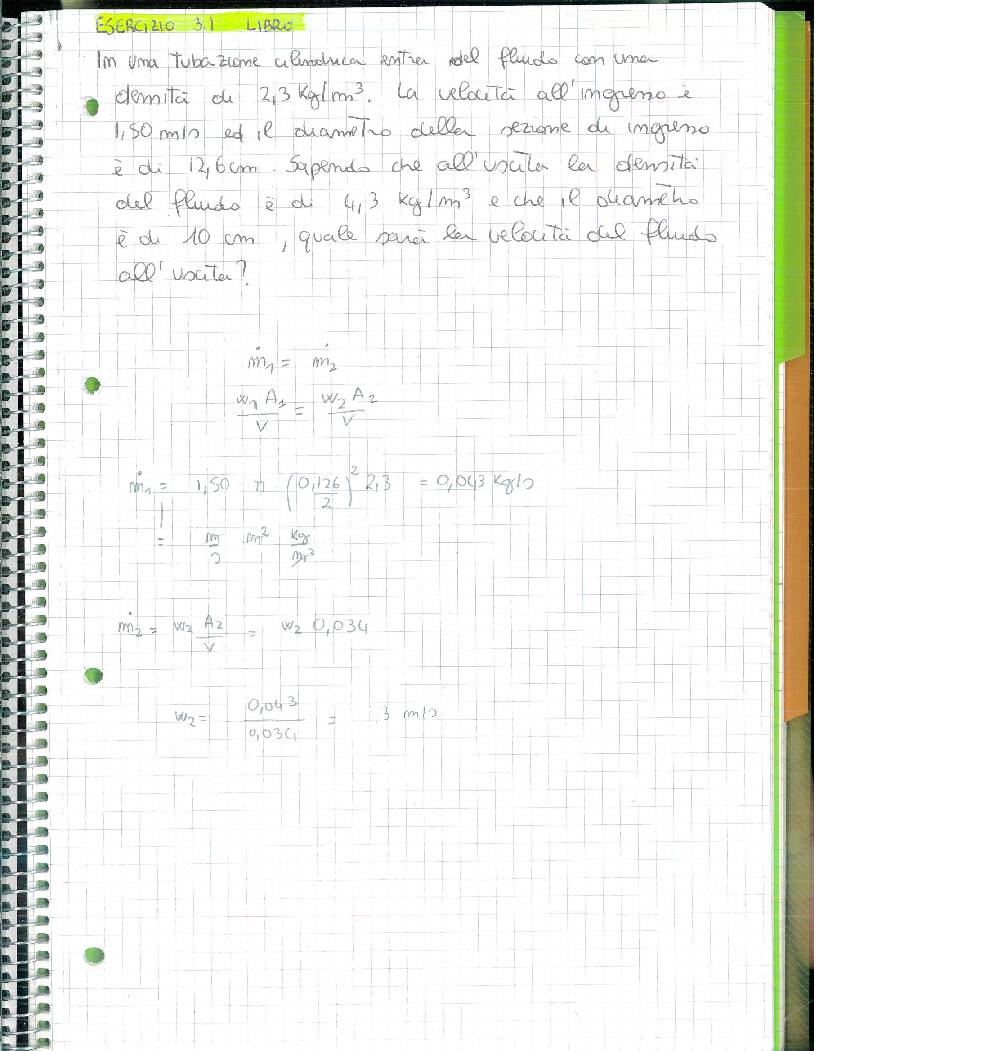 ESERCIZIO 3.1 LIBRO
In una tubazione cilindrica entra del fluido con una
densità di 2,3 Kg/m³. La velocità all'ingresso è
1,50 m/s ed il diametro della sezione di ingresso
è di 12,6 cm. Sapendo che all'uscita la densità
del fluido è di 4,3 kg/m³ e che il diametro
è di 10 cm, quale sarà la velocità del fluido
all'uscita?
ṁ₁ = ṁ₂
w₁ A₁ / v = w₂ A₂ / v
ṁ₁ = 1,50 π (0,126 / 2)² 2,3 = 0,043 Kg/s
= m/s m² kg/m³
ṁ₂ = w₂ A₂ / v = w₂ 0,034
w₂ = 0,043 / 0,034 = 3 m/s